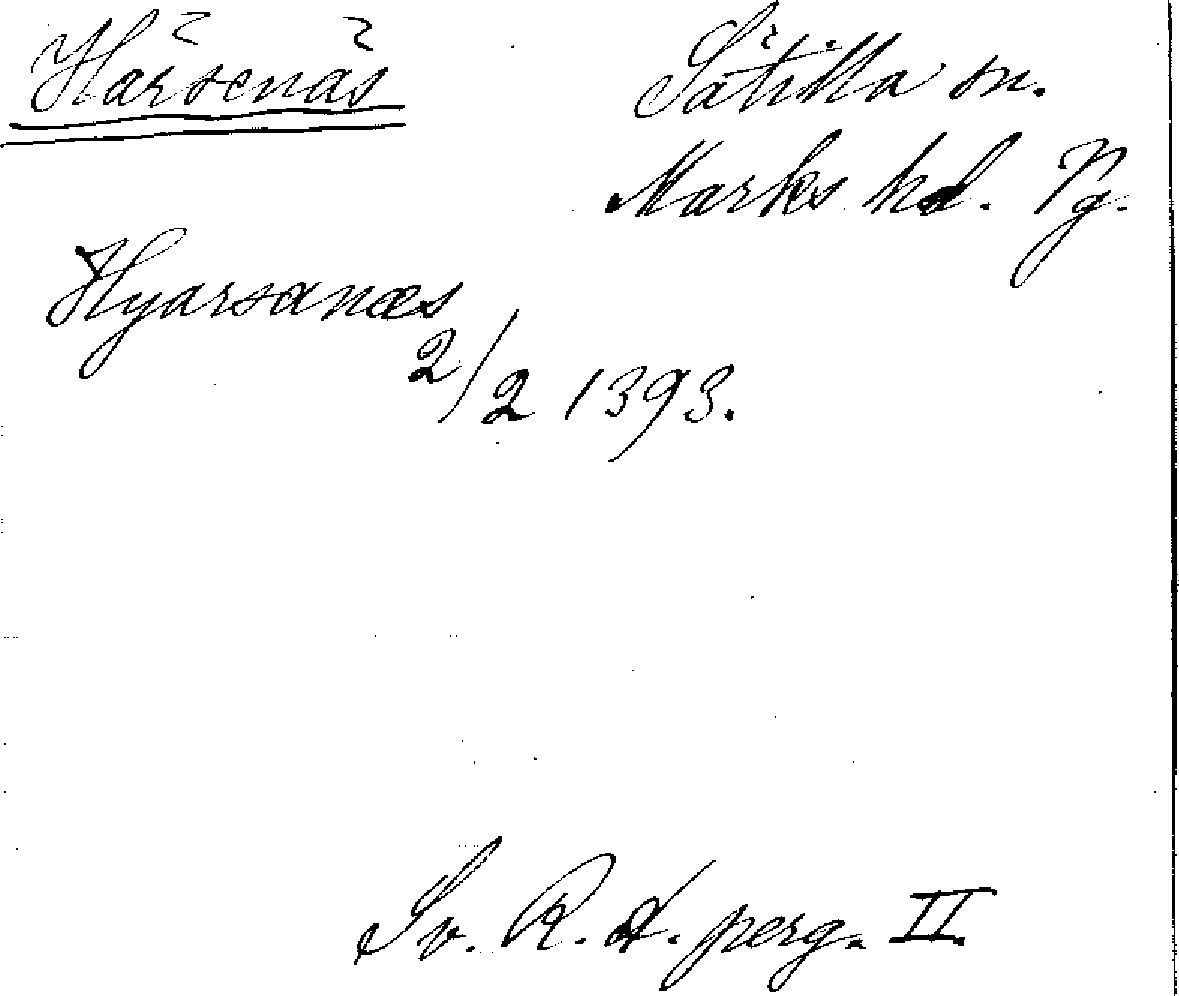 Härsenäs
Sätilla sn.
Marks hd. Vg.
Hyarsanæs
2/2 1393.
Sv. R. A. perg. II.